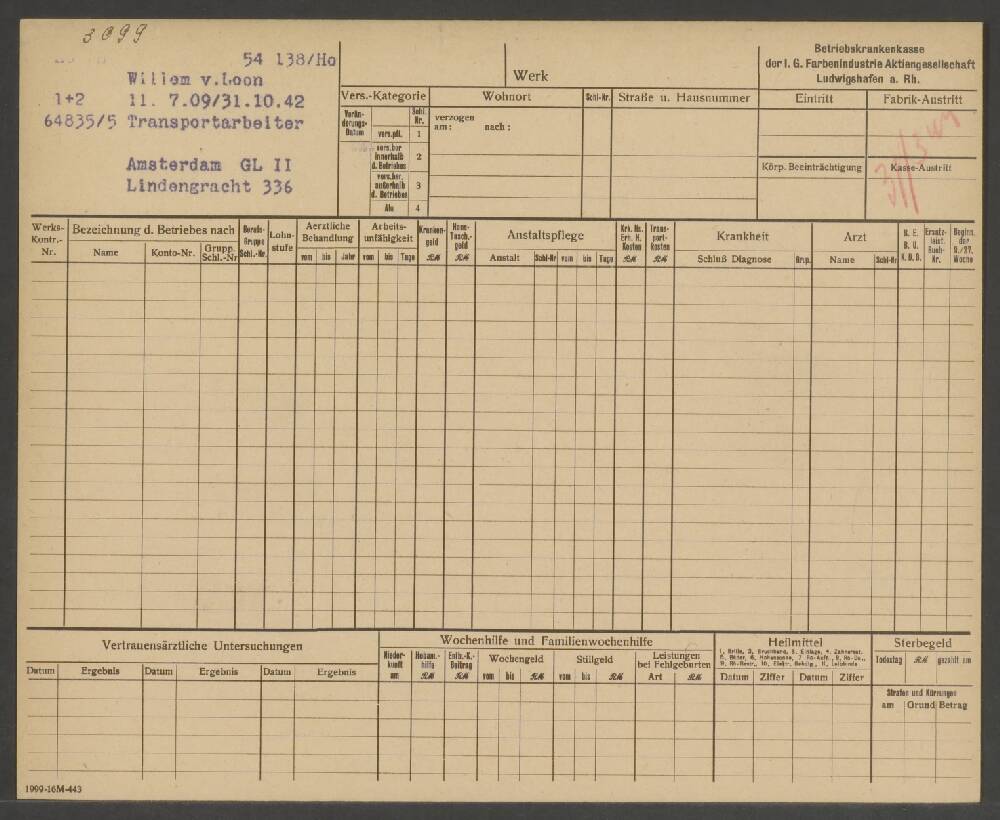 3099
54 138/Ho
Willem v.Loon
1+2 11. 7.09/31.10.42
64835/5 Transportarbeiter
Amsterdam GL II
Lindengracht 336
Werk
Betriebskrankenkasse
der I. G. Farbenindustrie Aktiengesellschaft
Ludwigshafen a. Rh.
Vers.-Kategorie Wohnort Schl-Nr. Straße u. Hausnummer Eintritt Fabrik-Austritt
Verän-
derungs-
Datum
Schl.
Nr.
vers.pfl. 1
vers.ber
innerhalb
d. Betriebes
2
vers.ber.
außerhalb
d. Betriebes
3
Alu 4
verzogen
am: nach:
Körp. Beeinträchtigung Kasse-Austritt
Werks-
Kontr.-
Nr.
Bezeichnung d. Betriebes nach
Name Konto-Nr. Grupp.
Schl.-Nr
Berufs-
Gruppe
Schl.-Nr.
Lohn-
stufe
Aerztliche
Behandlung
vom bis Jahr
Arbeits-
unfähigkeit
vom bis Tage
Kranken-
geld
RM
Haus-
Tasch.-
geld
RM
Anstaltspflege
Anstalt Schl-Nr vom bis Tage
Krk. Hs.
Erh. H.
Kosten
RM
Trans-
port-
kosten
RM
Krankheit
Schluß Diagnose Grp.
Arzt
Name Schl-Nr
B. E.
B. U.
K. D. B.
Ersatz-
leist.
Buch-
Nr.
Beginn.
der
9./27.
Woche
Vertrauensärztliche Untersuchungen
Datum Ergebnis Datum Ergebnis Datum Ergebnis
Wochenhilfe und Familienwochenhilfe
Nieder-
kunft
am
Hebam.-
hilfe
RM
Entb.-K.-
Beitrag
RM
Wochengeld
vom bis RM
Stillgeld
vom bis RM
Leistungen
bei Fehlgeburten
Art RM
Heilmittel
Datum Ziffer Datum Ziffer
Sterbegeld
Todestag RM gezahlt am
Strafen und Kürzungen
am Grund Betrag
1999-16M-443